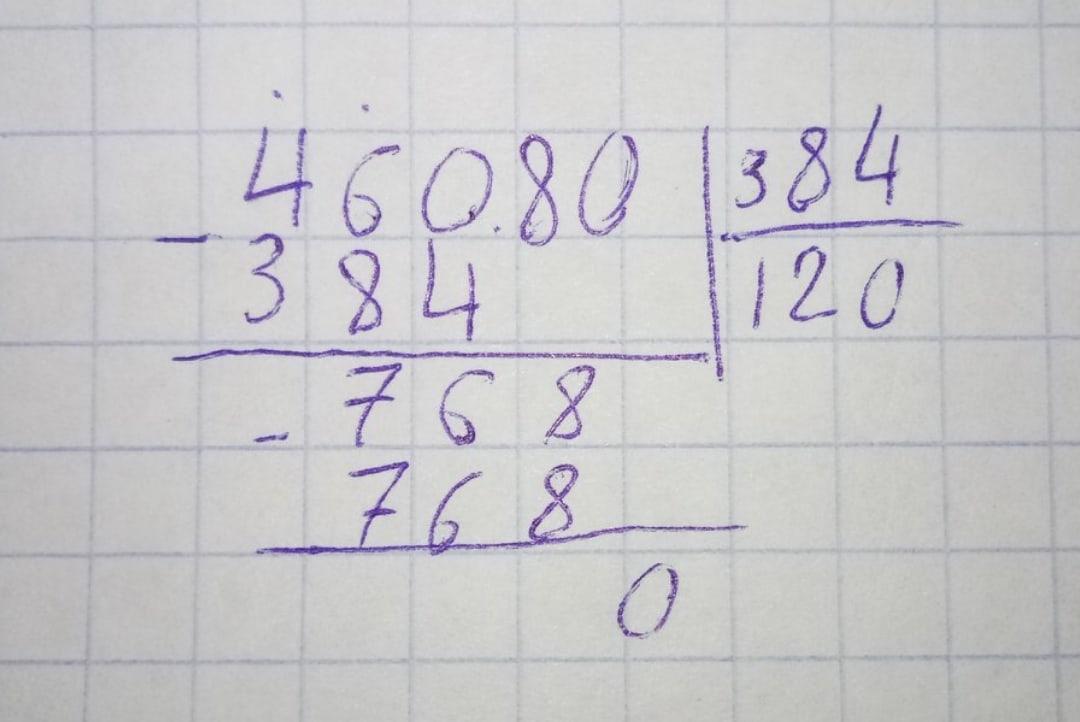 460.80 | 384
- 384 | 120
- 768
768
0